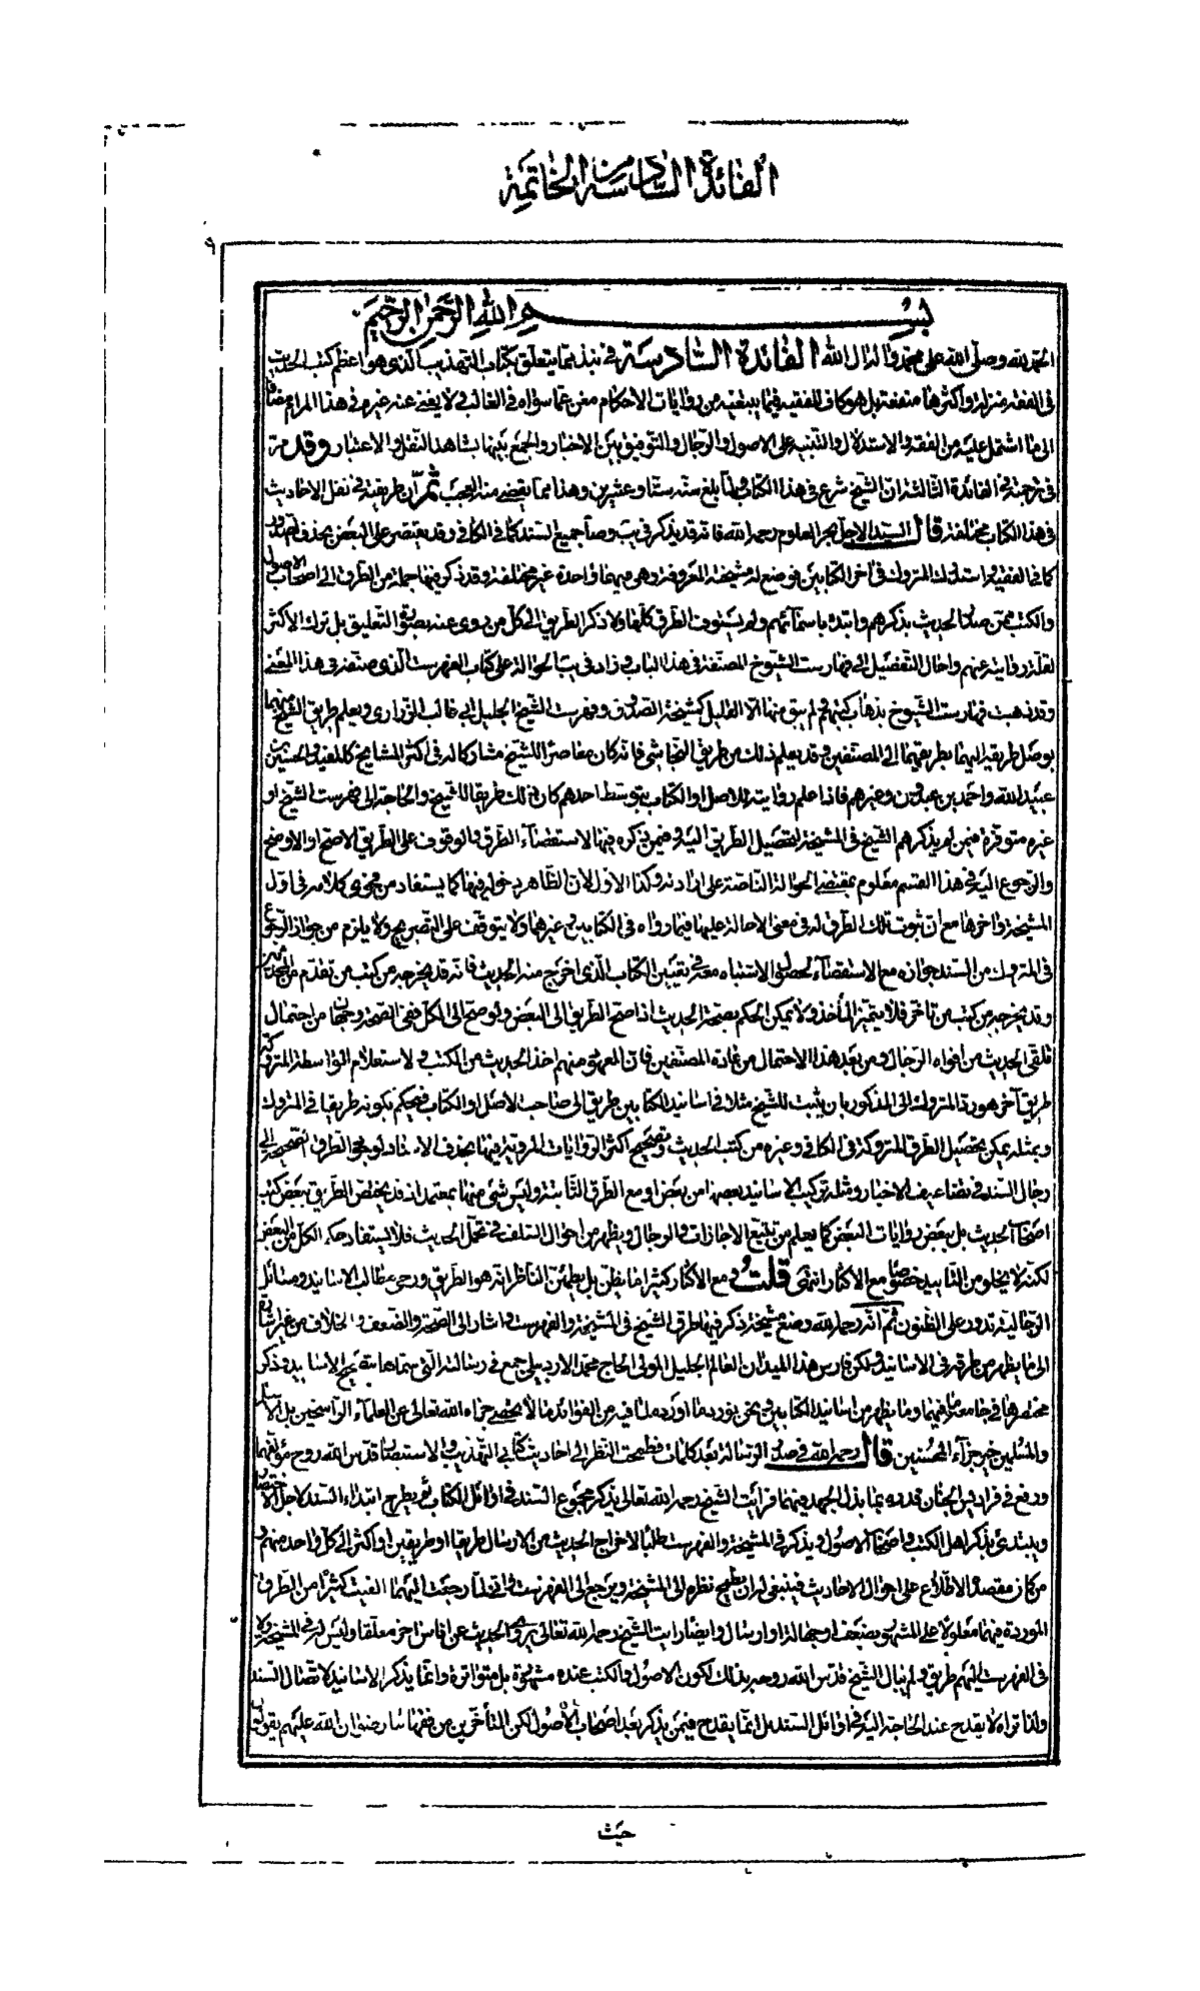 الفائدة السادسة من الخاتمة
بسم الله الرحمن الرحيم
الحمد لله وصلى الله على محمد وآله آل الله الفائدة السادسة في نبذ مما يتعلق بكتاب التهذيب الذي هو اعظم كتب الحديث
في الفقه منزلة واكثرها منفعة بل هو كاف للفقيه فيما يبتغيه من روايات الاحكام مغن عما سواه في الغالب لا يغني عنه غيره في هذا المرام مضافا
الى ما اشتمل عليه من الفقه والاستدلال والتنبيه على الاصول والرجال والتوفيق بين الاخبار والجمع بينها بشاهد النقل والاعتبار وقد مر
في ترجمته في الفائدة الثالثة ان الشيخ شرع في هذا الكتاب ولما بلغ سنه ستا وعشرين وهذا مما يقضى منه العجب ثم ان طريقته في نقل الاحاديث
في هذا الكتاب مختلفة قال السيد الاجل بحر العلوم رحمه الله فانه قد يذكر في جميع السند كما في الكافي وقد يقتصر على البعض بحذف الصدور
كما في الفقيه واستدرك المتروك في آخر الكتابين فوضع له مشيخته المعروفة وهي فيهما واحدة غير مختلفة وقد ذكر فيها جملة من الطرق الى اصحاب الاصول
والكتب ممن صدر الحديث بذكرهم وابتدء باسمائهم ولم يستوف الطرق كلها ولا ذكر الطريق الى كل من روى عنه بصورة التعليق بل ترك الاكثر
لقلة روايته عنهم واحال التفصيل الى فهارست الشيوخ المصنفة في هذا الباب وزاد في الحوالة على كتاب الفهرست الذي صنفه في هذا المعنى
وقد ذهبت فهارست الشيوخ بذهاب كتبهم ولم يبق منها الا القليل كمشيخة الصدوق وفهرست الشيخ الجليل ابي غالب الزراري ويعلم طريق الشيخ منهما
بوصل طريقه اليهما بطريقهما الى المصنفين وقد يعلم ذلك من طريق النجاشي فانه كان معاصرا للشيخ مشاركا له في اكثر المشايخ كالمفيد والحسين بن
عبيد الله واحمد بن عبدون وغيرهم فاذا علم روايته للاصل او الكتاب بتوسط احدهم كان ذلك طريقا للشيخ والحاجة الى فهرست الشيخ او
غيره متوفرة فيمن لم يذكرهم الشيخ في المشيخة لتحصيل الطريق اليه وفيمن ذكره فيها لاستقصاء الطرق والوقوف على الطريق الاصح او الاوضح
والرجوع اليه في هذا القسم معلوم بمقتضى الحوالة الناصة على ارادته وكذا الاول لان الظاهر دخوله فيها كما يستفاد من فحوى كلامه في اول
المشيخة وآخرها مع ان ثبوت تلك الطرق له في معنى الاحالة عليها فيما رواه في الكتابين وغيرهما ولا يتوقف على التصريح ولا يلزم من جواز الرجوع
في المتروك من السند جوازه مع الاستقصاء لحصول الاشتباه معه في تعيين الكتاب الذي اخرج منه الحديث فانه قد يخرجه من كتب من تقدم من المحدثين
وقد يخرجه من كتب من تأخر فلا يتميز المأخذ ولا يمكن الحكم بصحة الحديث اذا صح الطريق الى البعض ولو صح الى الكل ففي الصحة وجهان من احتمال
تلقي الحديث من افواه الرجال ومن بعد هذا الاحتمال من عادة المصنفين فان المعهود منهم اخذ الحديث من الكتب ولاستعلام الواسطة المتروكة
طريق آخر هو رد المتروك الى المذكور بان يثبت للشيخ مثلا في اسانيد الكتابين طريق الى صاحب الاصل او الكتاب فيحكم بكونه طريقا في المتروك
وبمثله يمكن تحصيل الطرق المتروكة في الكافي وغيره من كتب الحديث وتصحيح اكثر الروايات المروية فيها بحذف الاسناد لوجود الطرق الصحيحة الى
رجال السند في تضاعيف الاخبار ومثله تركيب الاسانيد بعضها من بعض او مع الطرق الثابتة وليس شئ منها بمعتمد اذ قد يختص الطريق ببعض كتب
اصحاب الحديث بل ببعض روايات البعض كما يعلم من تتبع الاجازات والرجال ويظهر من احوال السلف في تحمل الحديث فلا يستفاد حكم الكل من البعض
لكنه لا يخلو من التأييد خصوصا مع الاكثار انتهى قلت ومع الاكثار كثيرا ما يظن بل يطمئن الناظر انه هو الطريق ورحى مطالب الاسانيد ومسائل
الرجالية تدور على الظنون ثم انه رحمه الله وضع مشيخة ذكر فيها طرق الشيخ في المشيخة والفهرست واشار الى الصحة والضعف والخلاف من غير اشارة
الى ما يظهر من طرقه في الاسانيد ولكن فارس هذا الميدان العالم الجليل المولى الحاج محمد الاردبيلي جمع في رسالته التي سماها بتصحيح الاسانيد وذكر
مختصرها في جامعه ما فيهما وما يظهر من اسانيد الكتابين ونحن نورد ما اورده لما فيه من الفوائد ما لا يحصى جزاه الله تعالى عن العلماء الراسخين بل الاسلام
والمسلمين خير جزاء المحسنين قال رحمه الله في صدر الرسالة بعد كلمات فطمحت النظر الى احاديث كتابي التهذيب والاستبصار قدس الله روح مؤلفهما
ورفع في فراديس الجنان قدره بما بذل الجهد فيهما فرأيت الشيخ رحمه الله تعالى يذكر مجموع السند في اوائل الكتاب ثم يطرح ابتداء السند لاجل الاختصار
ويبتدئ بذكر اهل الكتب واصحاب الاصول ويذكر في المشيخة والفهرست طلبا لاخراج الحديث من الارسال طريقا او طريقين او اكثر الى كل واحد منهم و
من كان مقصده الاطلاع على احوال الاحاديث فينبغي له ان يطمح نظره الى المشيخة ويرجع الى الفهرست واني لما رجعت اليهما الفيت كثيرا من الطرق
الموردة فيهما معلولا على المشهور بضعف او جهالة او ارسال وايضا رأيت الشيخ رحمه الله تعالى يروي الحديث عن اناس اخر معلقا وليس له في المشيخة ولا
في الفهرست اليهم طريق ولم يبال الشيخ قدس الله روحه بذلك لكون الاصول والكتب عنده مشهورة بل متواترة وانما يذكر الاسانيد لاتصال السند
ولذا تراه لا يقدح عند الحاجة اليه في اوائل السند بل انما يقدح فيمن يذكر بعد اصحاب الاصول لكن المتأخرين من فقهائنا رضوان الله عليهم يقولون
حيث